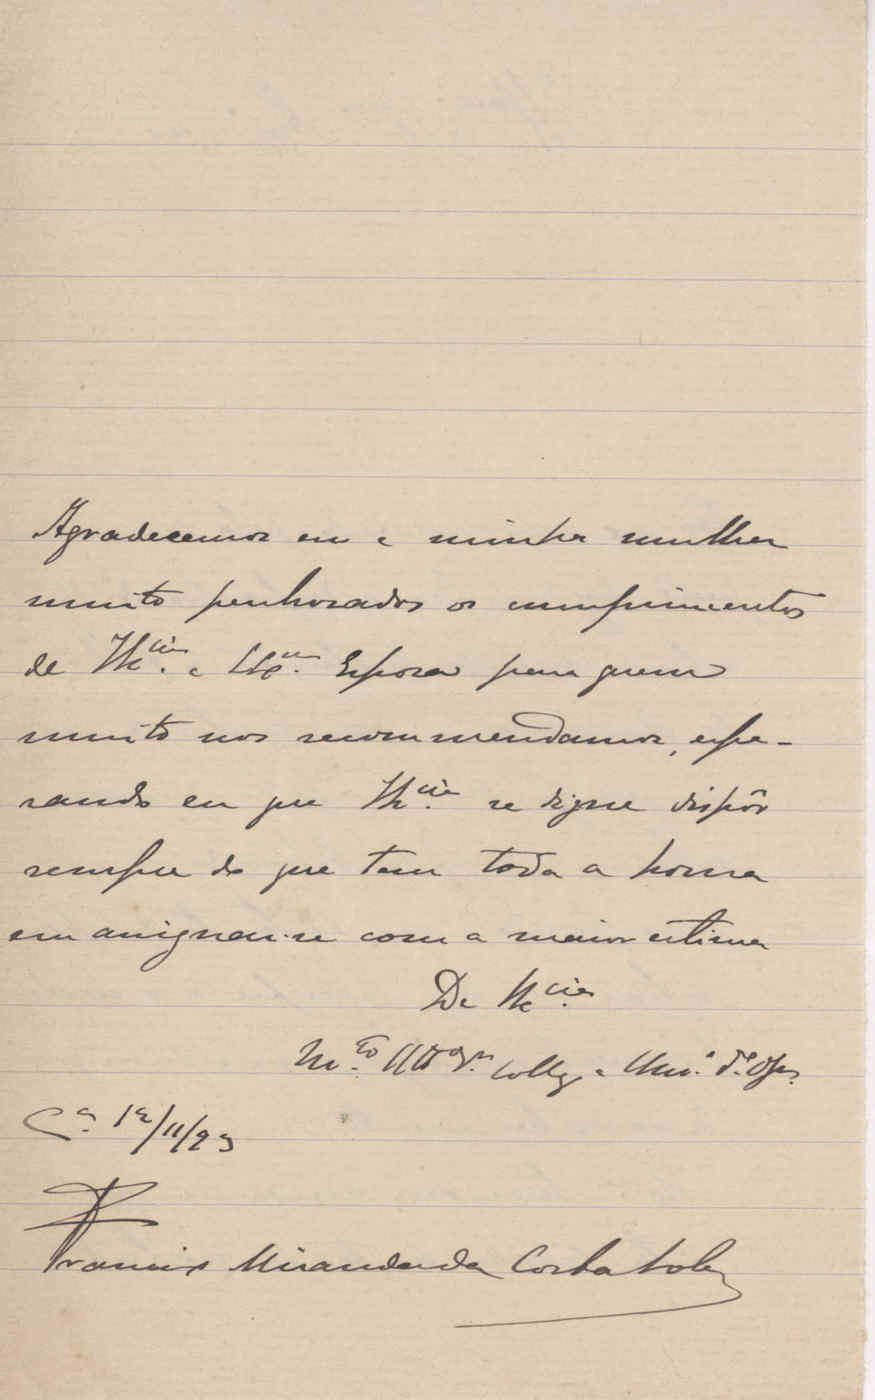 Agradecemos eu e minha mulher
muito penhorados os cumprimentos
de V.cia e Ex.ma Esposa para quem
muito nos recommendamos, espe-
rando eu que V.cia se digne dispôr
sempre do que tem toda a honra
em assignar-se com a maior estima
De V.cia
M.to Att.o V.or Colleg. e Am.o
C.a 12/11/93
Francisco Miranda da Costa Lobo